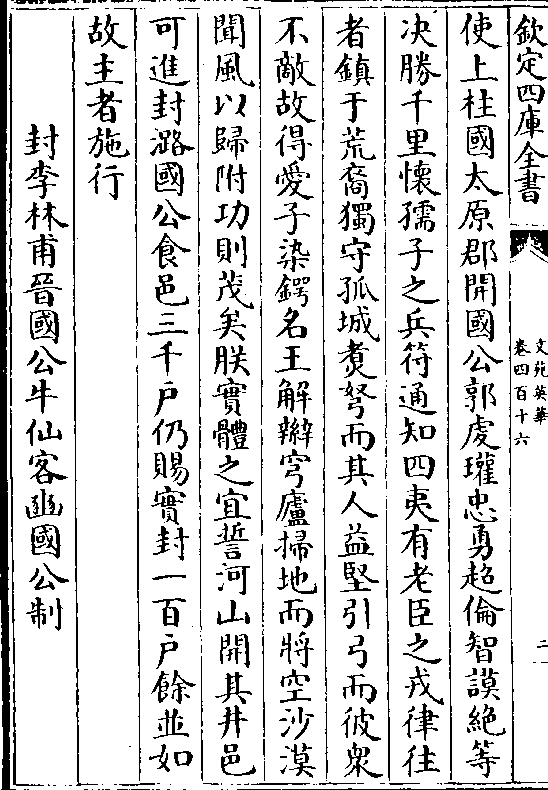 欽定四庫全書
文苑英華
卷四百十六
二
使上柱國太原郡開國公郭虔瓘忠勇超倫智謨絶等
决勝千里懷孺子之兵符通知四夷有老臣之戎律往
者鎮于荒裔獨守孤城煑弩而其人益堅引弓而彼衆
不敵故得愛子染鍔名王解辮穹廬掃地而將空沙漠
聞風以歸附功則茂矣朕實體之宜誓河山開其井邑
可進封潞國公食邑三千户仍賜實封一百户餘並如
故主者施行
封李林甫晉國公牛仙客豳國公制